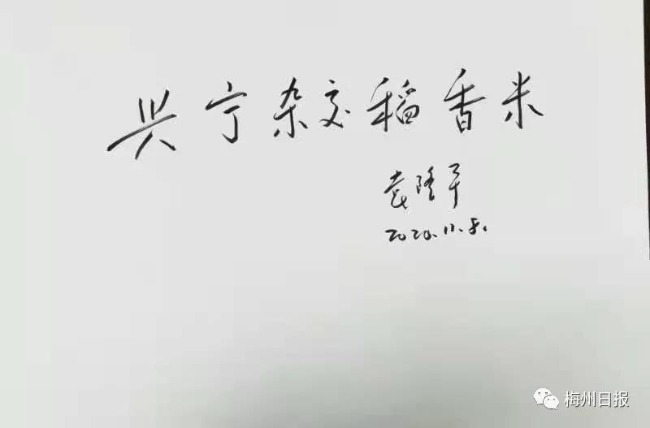 兴宁杂交稻香米
袁隆平
2020.11.8.
梅州日报